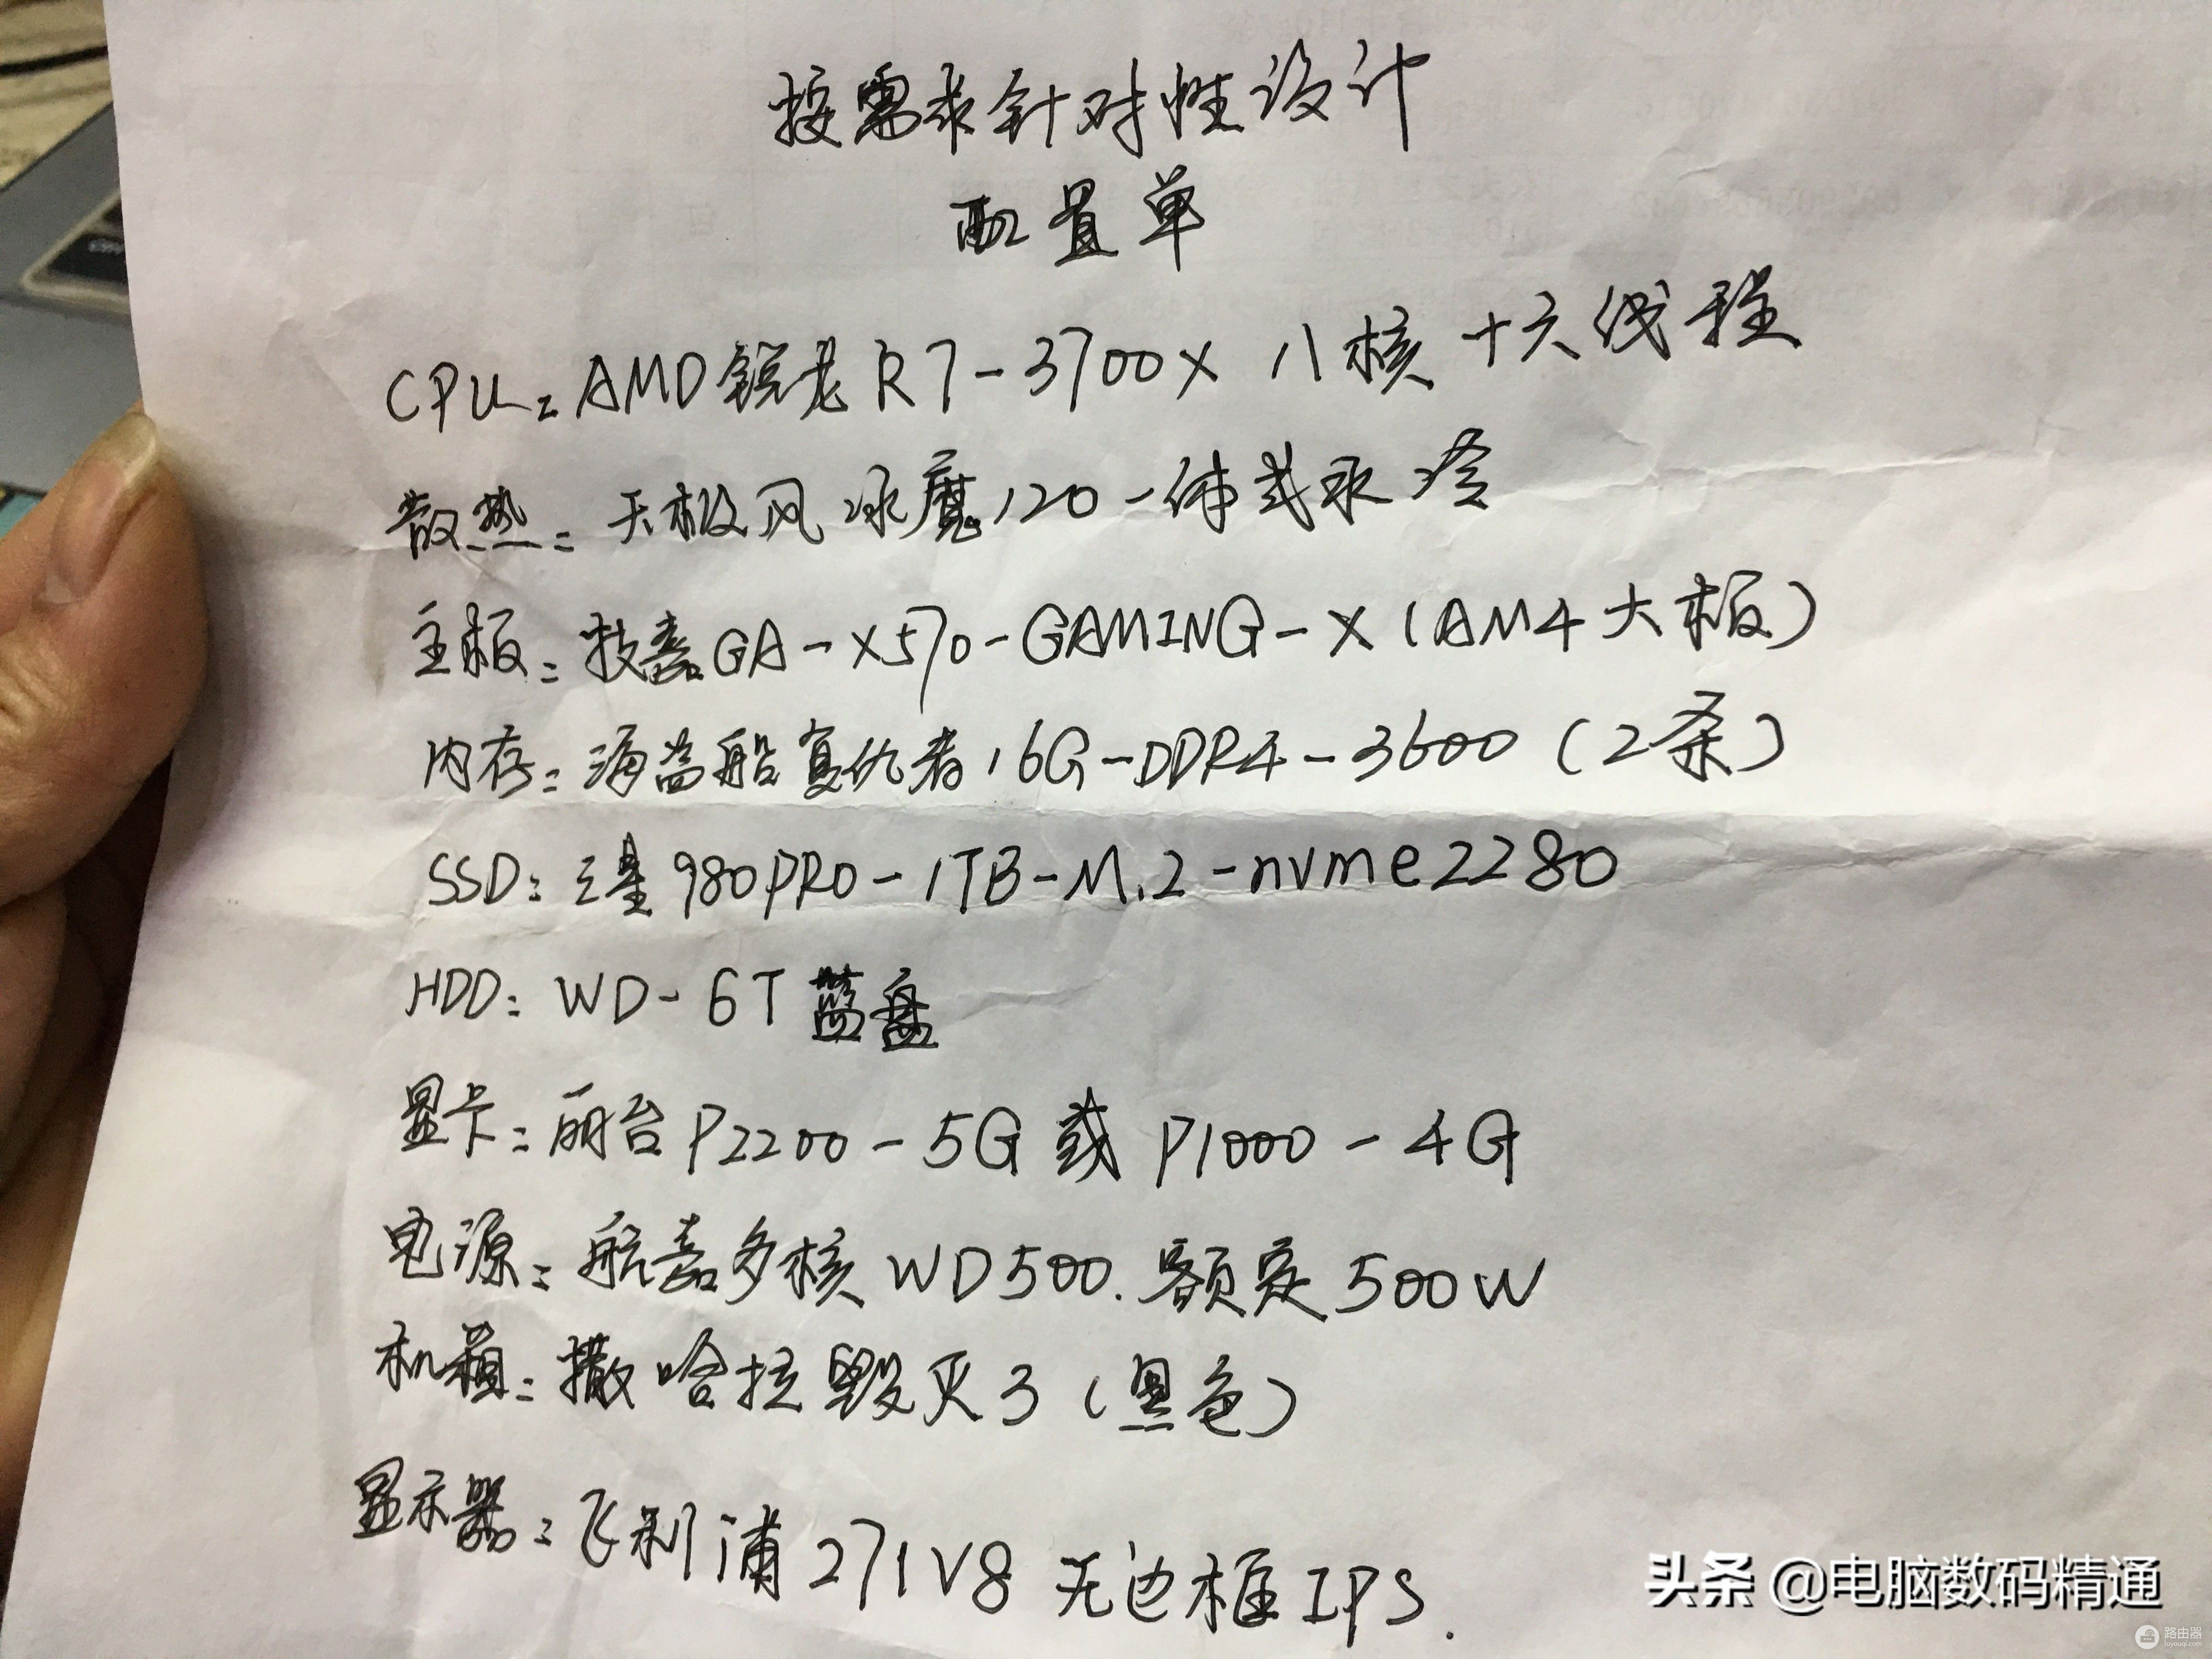 按需求针对性设计
配置单
CPU:AMD锐龙R7-3700X 八核十六线程
散热:天极风冰魔120一体式水冷
主板:技嘉GA-X570-GAMING-X(AM4大板)
内存:海盗船复仇者16G-DDR4-3600(2条)
SSD:三星980PRO-1TB-M.2-nvme2280
HDD:WD-6T蓝盘
显卡:丽台P2200-5G或P1000-4G
电源:航嘉多核WD500.额定500W
机箱:撒哈拉毁灭3(黑色)
显示器:飞利浦271V8无边框IPS.
头条 @电脑数码精通
路由器
luyouqi.com